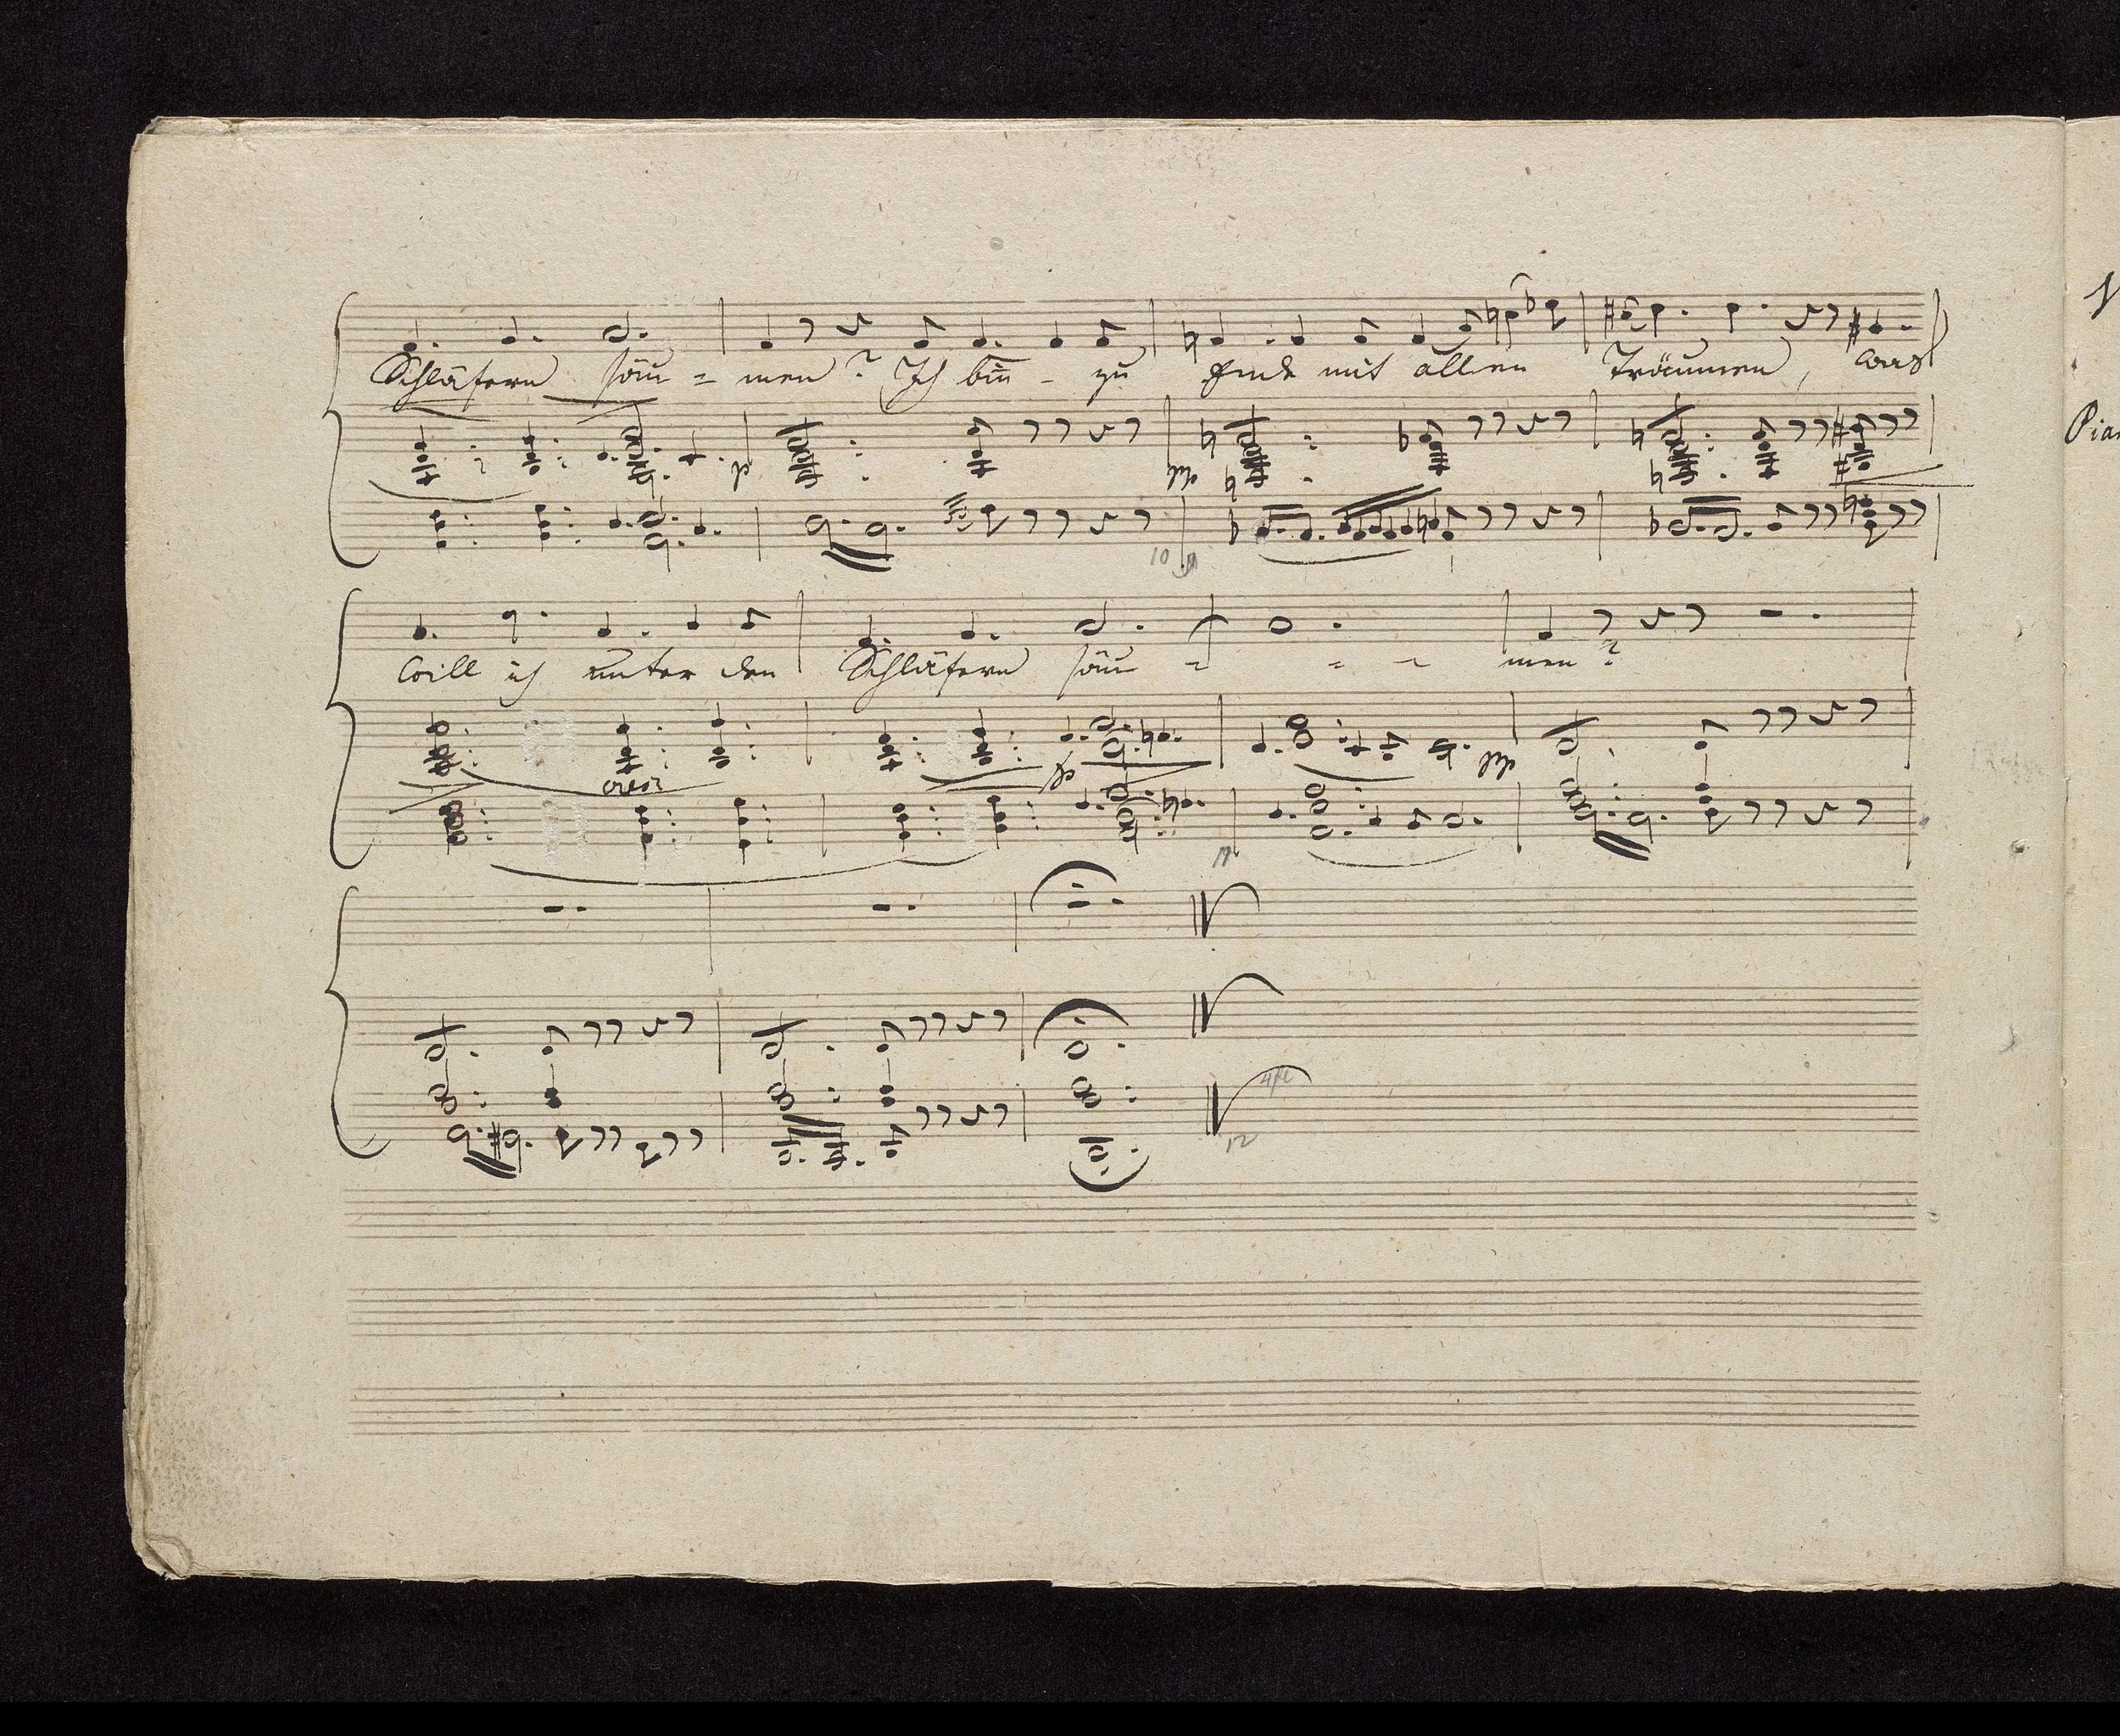 Schläfern säu = men? Ich bin - zu Ende mit allen Träumen, was
p pp
10
will ich unter den Schläfern säu = = - men?
cresc
p pp
11
12
Pian